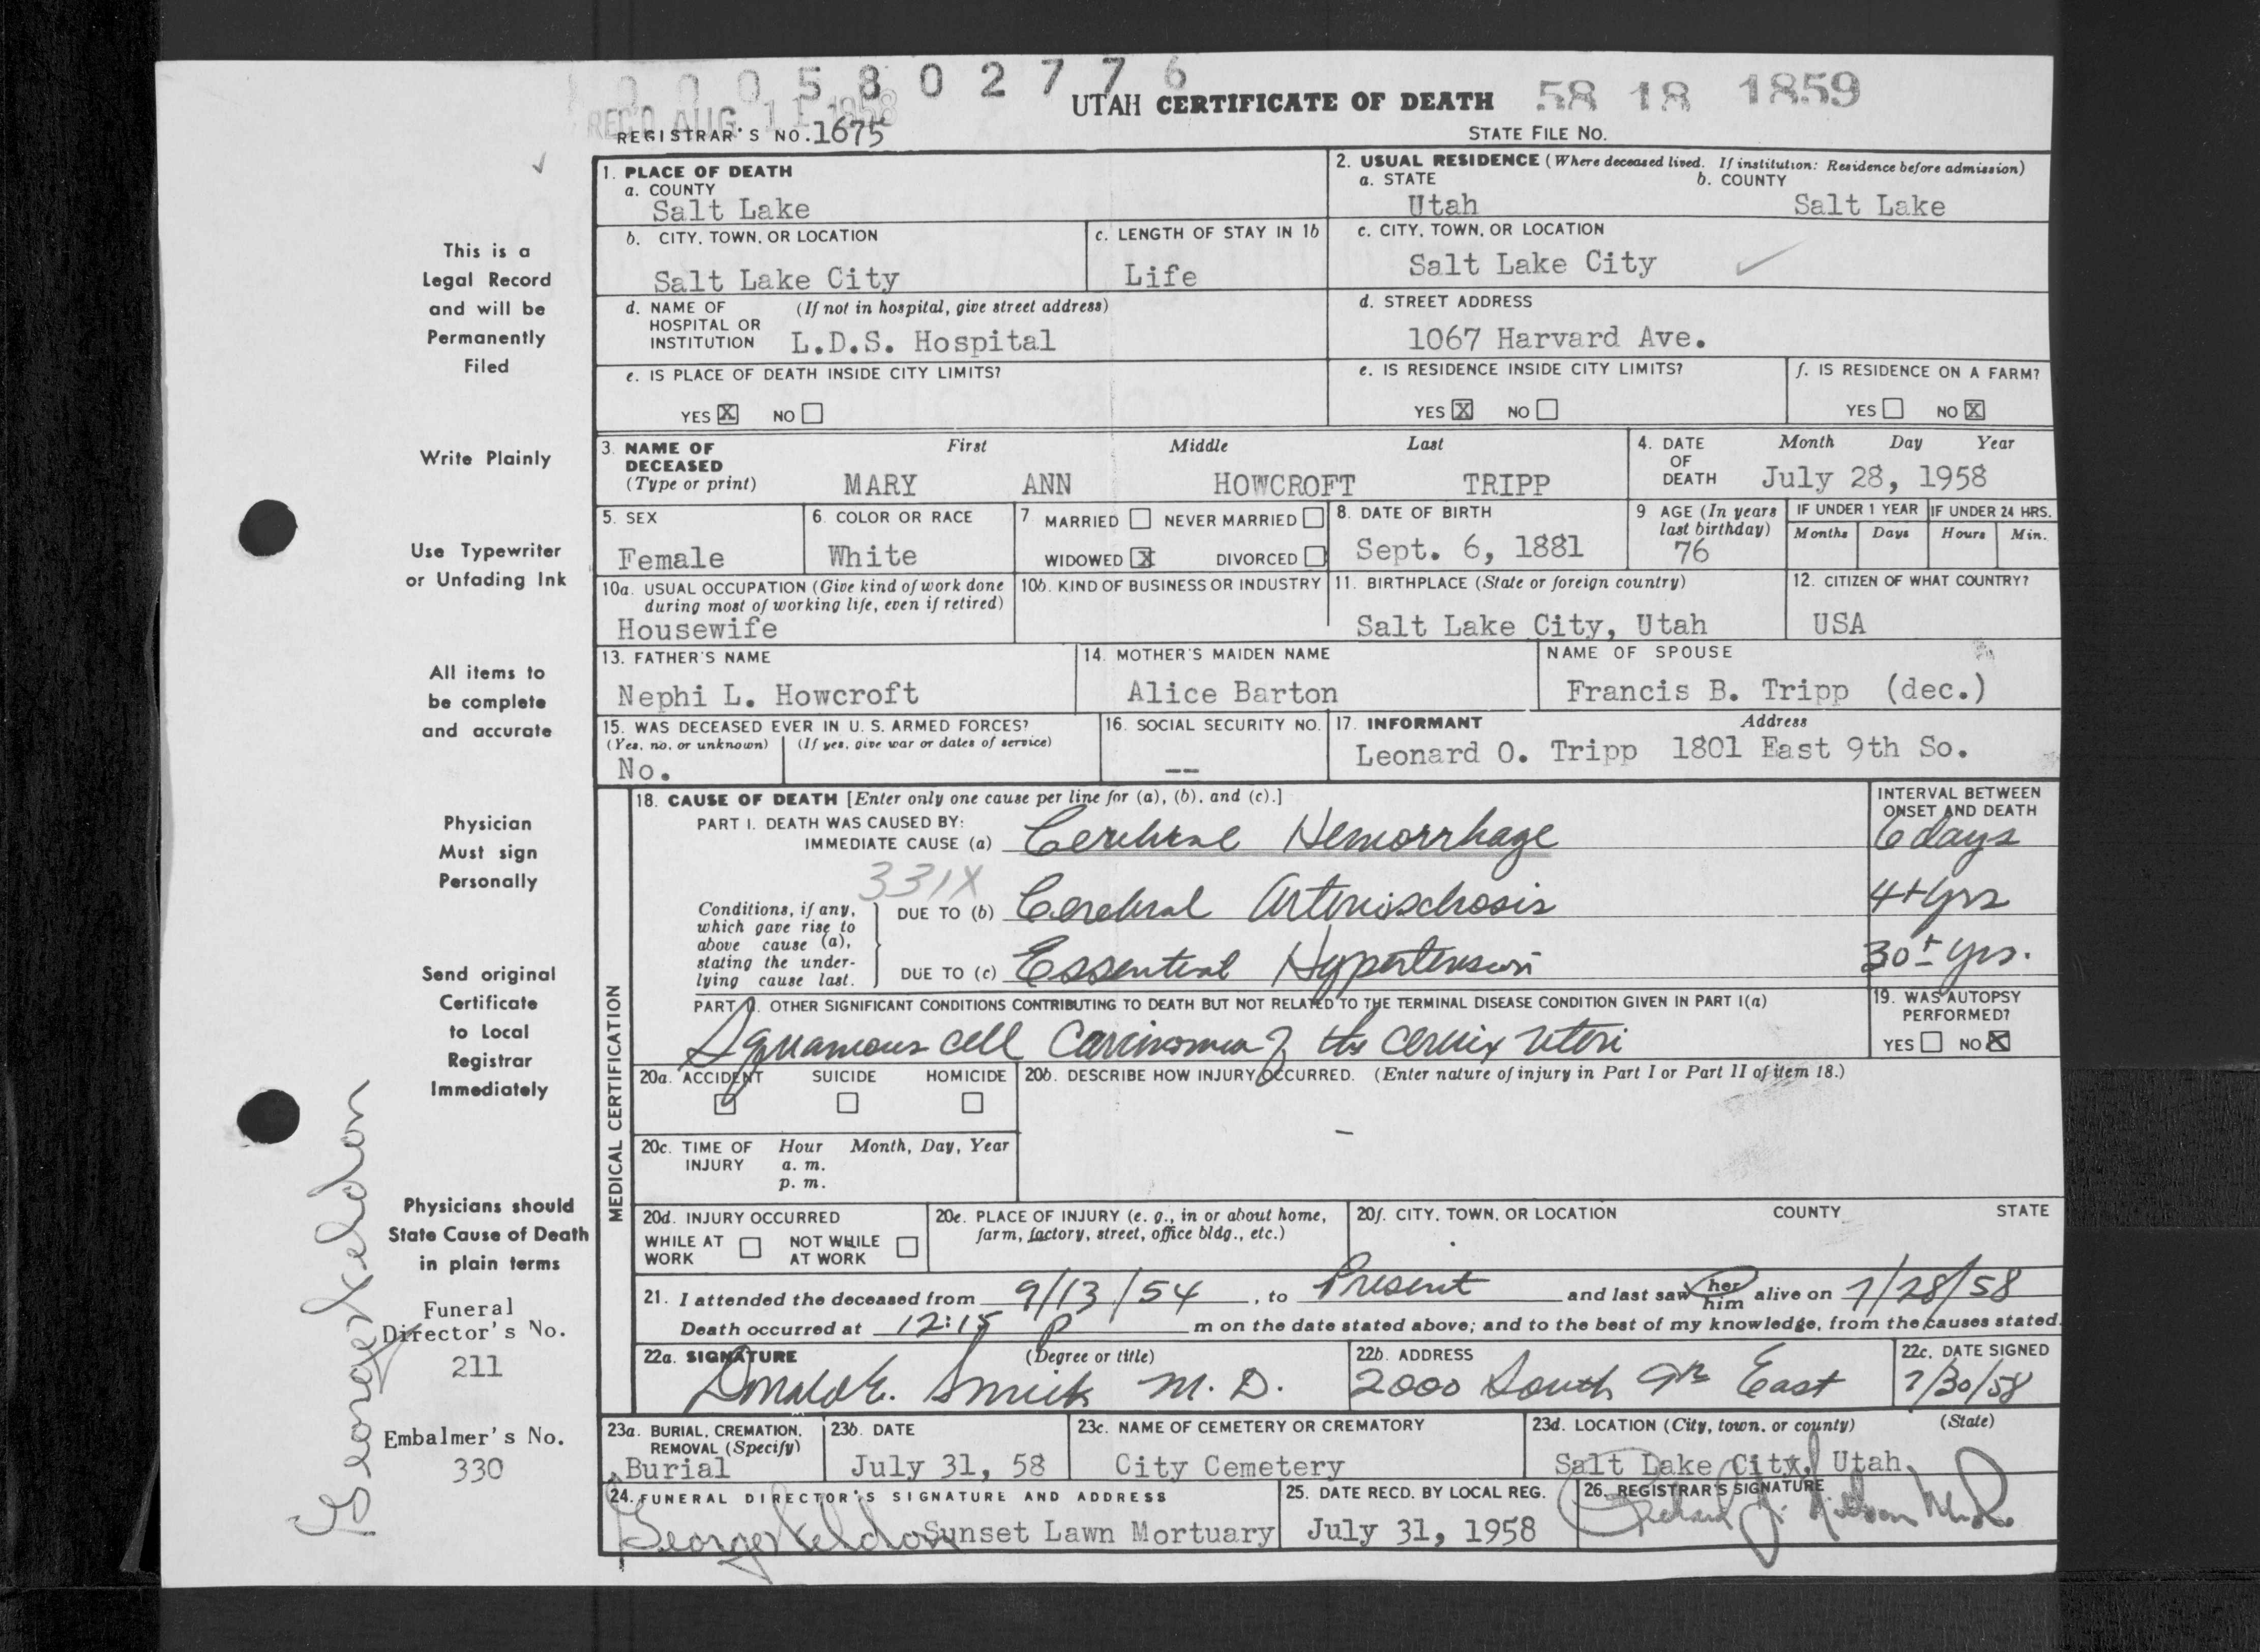 0005802776
REC'D AUG 11 1958
UTAH CERTIFICATE OF DEATH 58 18 1859
REGISTRAR'S NO. 1675
STATE FILE NO.
This is a
Legal Record
and will be
Permanently
Filed
Write Plainly
Use Typewriter
or Unfading Ink
All items to
be complete
and accurate
Physician
Must sign
Personally
Send original
Certificate
to Local
Registrar
Immediately
Physicians should
State Cause of Death
in plain terms
Funeral
Director's No.
211
Embalmer's No.
330
1. PLACE OF DEATH
a. COUNTY
Salt Lake
2. USUAL RESIDENCE (Where deceased lived. If institution: Residence before admission)
a. STATE b. COUNTY
Utah Salt Lake
b. CITY, TOWN, OR LOCATION
Salt Lake City
c. LENGTH OF STAY IN 1b
Life
c. CITY, TOWN, OR LOCATION
Salt Lake City
d. NAME OF (If not in hospital, give street address)
HOSPITAL OR
INSTITUTION L.D.S. Hospital
d. STREET ADDRESS
1067 Harvard Ave.
e. IS PLACE OF DEATH INSIDE CITY LIMITS?
YES X NO
e. IS RESIDENCE INSIDE CITY LIMITS?
YES X NO
f. IS RESIDENCE ON A FARM?
YES NO X
3. NAME OF First Middle Last
DECEASED
(Type or print) MARY ANN HOWCROFT TRIPP
4. DATE Month Day Year
OF
DEATH July 28, 1958
5. SEX
Female
6. COLOR OR RACE
White
7. MARRIED NEVER MARRIED
WIDOWED X DIVORCED
8. DATE OF BIRTH
Sept. 6, 1881
9 AGE (In years
last birthday)
76
IF UNDER 1 YEAR
Months Days
IF UNDER 24 HRS.
Hours Min.
10a. USUAL OCCUPATION (Give kind of work done
during most of working life, even if retired)
Housewife
10b. KIND OF BUSINESS OR INDUSTRY
11. BIRTHPLACE (State or foreign country)
Salt Lake City, Utah
12. CITIZEN OF WHAT COUNTRY?
USA
13. FATHER'S NAME
Nephi L. Howcroft
14. MOTHER'S MAIDEN NAME
Alice Barton
NAME OF SPOUSE
Francis B. Tripp (dec.)
15. WAS DECEASED EVER IN U. S. ARMED FORCES?
(Yes, no, or unknown) (If yes, give war or dates of service)
No.
16. SOCIAL SECURITY NO.
--
17. INFORMANT Address
Leonard O. Tripp 1801 East 9th So.
MEDICAL CERTIFICATION
18. CAUSE OF DEATH [Enter only one cause per line for (a), (b), and (c).]
INTERVAL BETWEEN
ONSET AND DEATH
PART I. DEATH WAS CAUSED BY:
IMMEDIATE CAUSE (a) Cerebral Hemorrhage 6 days
331X
Conditions, if any,
which gave rise to
above cause (a),
stating the under-
lying cause last.
DUE TO (b) Cerebral Arteriosclerosis 4+ yrs
DUE TO (c) Essential Hypertension 30± yrs.
PART II. OTHER SIGNIFICANT CONDITIONS CONTRIBUTING TO DEATH BUT NOT RELATED TO THE TERMINAL DISEASE CONDITION GIVEN IN PART I(a)
Squamous cell Carcinoma of the cervix uteri
19. WAS AUTOPSY
PERFORMED?
YES NO X
20a. ACCIDENT SUICIDE HOMICIDE
20b. DESCRIBE HOW INJURY OCCURRED. (Enter nature of injury in Part I or Part II of item 18.)
20c. TIME OF Hour Month, Day, Year
INJURY a. m.
p. m.
20d. INJURY OCCURRED
WHILE AT NOT WHILE
WORK AT WORK
20e. PLACE OF INJURY (e. g., in or about home,
farm, factory, street, office bldg., etc.)
20f. CITY, TOWN, OR LOCATION COUNTY STATE
21. I attended the deceased from 9/13/54, to Present and last saw her him alive on 7/28/58
Death occurred at 12:15 p m on the date stated above; and to the best of my knowledge, from the causes stated.
22a. SIGNATURE (Degree or title)
Donald E. Smith M. D.
22b. ADDRESS
2000 South 9th East
22c. DATE SIGNED
7/30/58
23a. BURIAL, CREMATION,
REMOVAL (Specify)
Burial
23b. DATE
July 31, 58
23c. NAME OF CEMETERY OR CREMATORY
City Cemetery
23d. LOCATION (City, town, or county) (State)
Salt Lake City, Utah
24. FUNERAL DIRECTOR'S SIGNATURE AND ADDRESS
Sunset Lawn Mortuary
25. DATE RECD. BY LOCAL REG.
July 31, 1958
26. REGISTRAR'S SIGNATURE